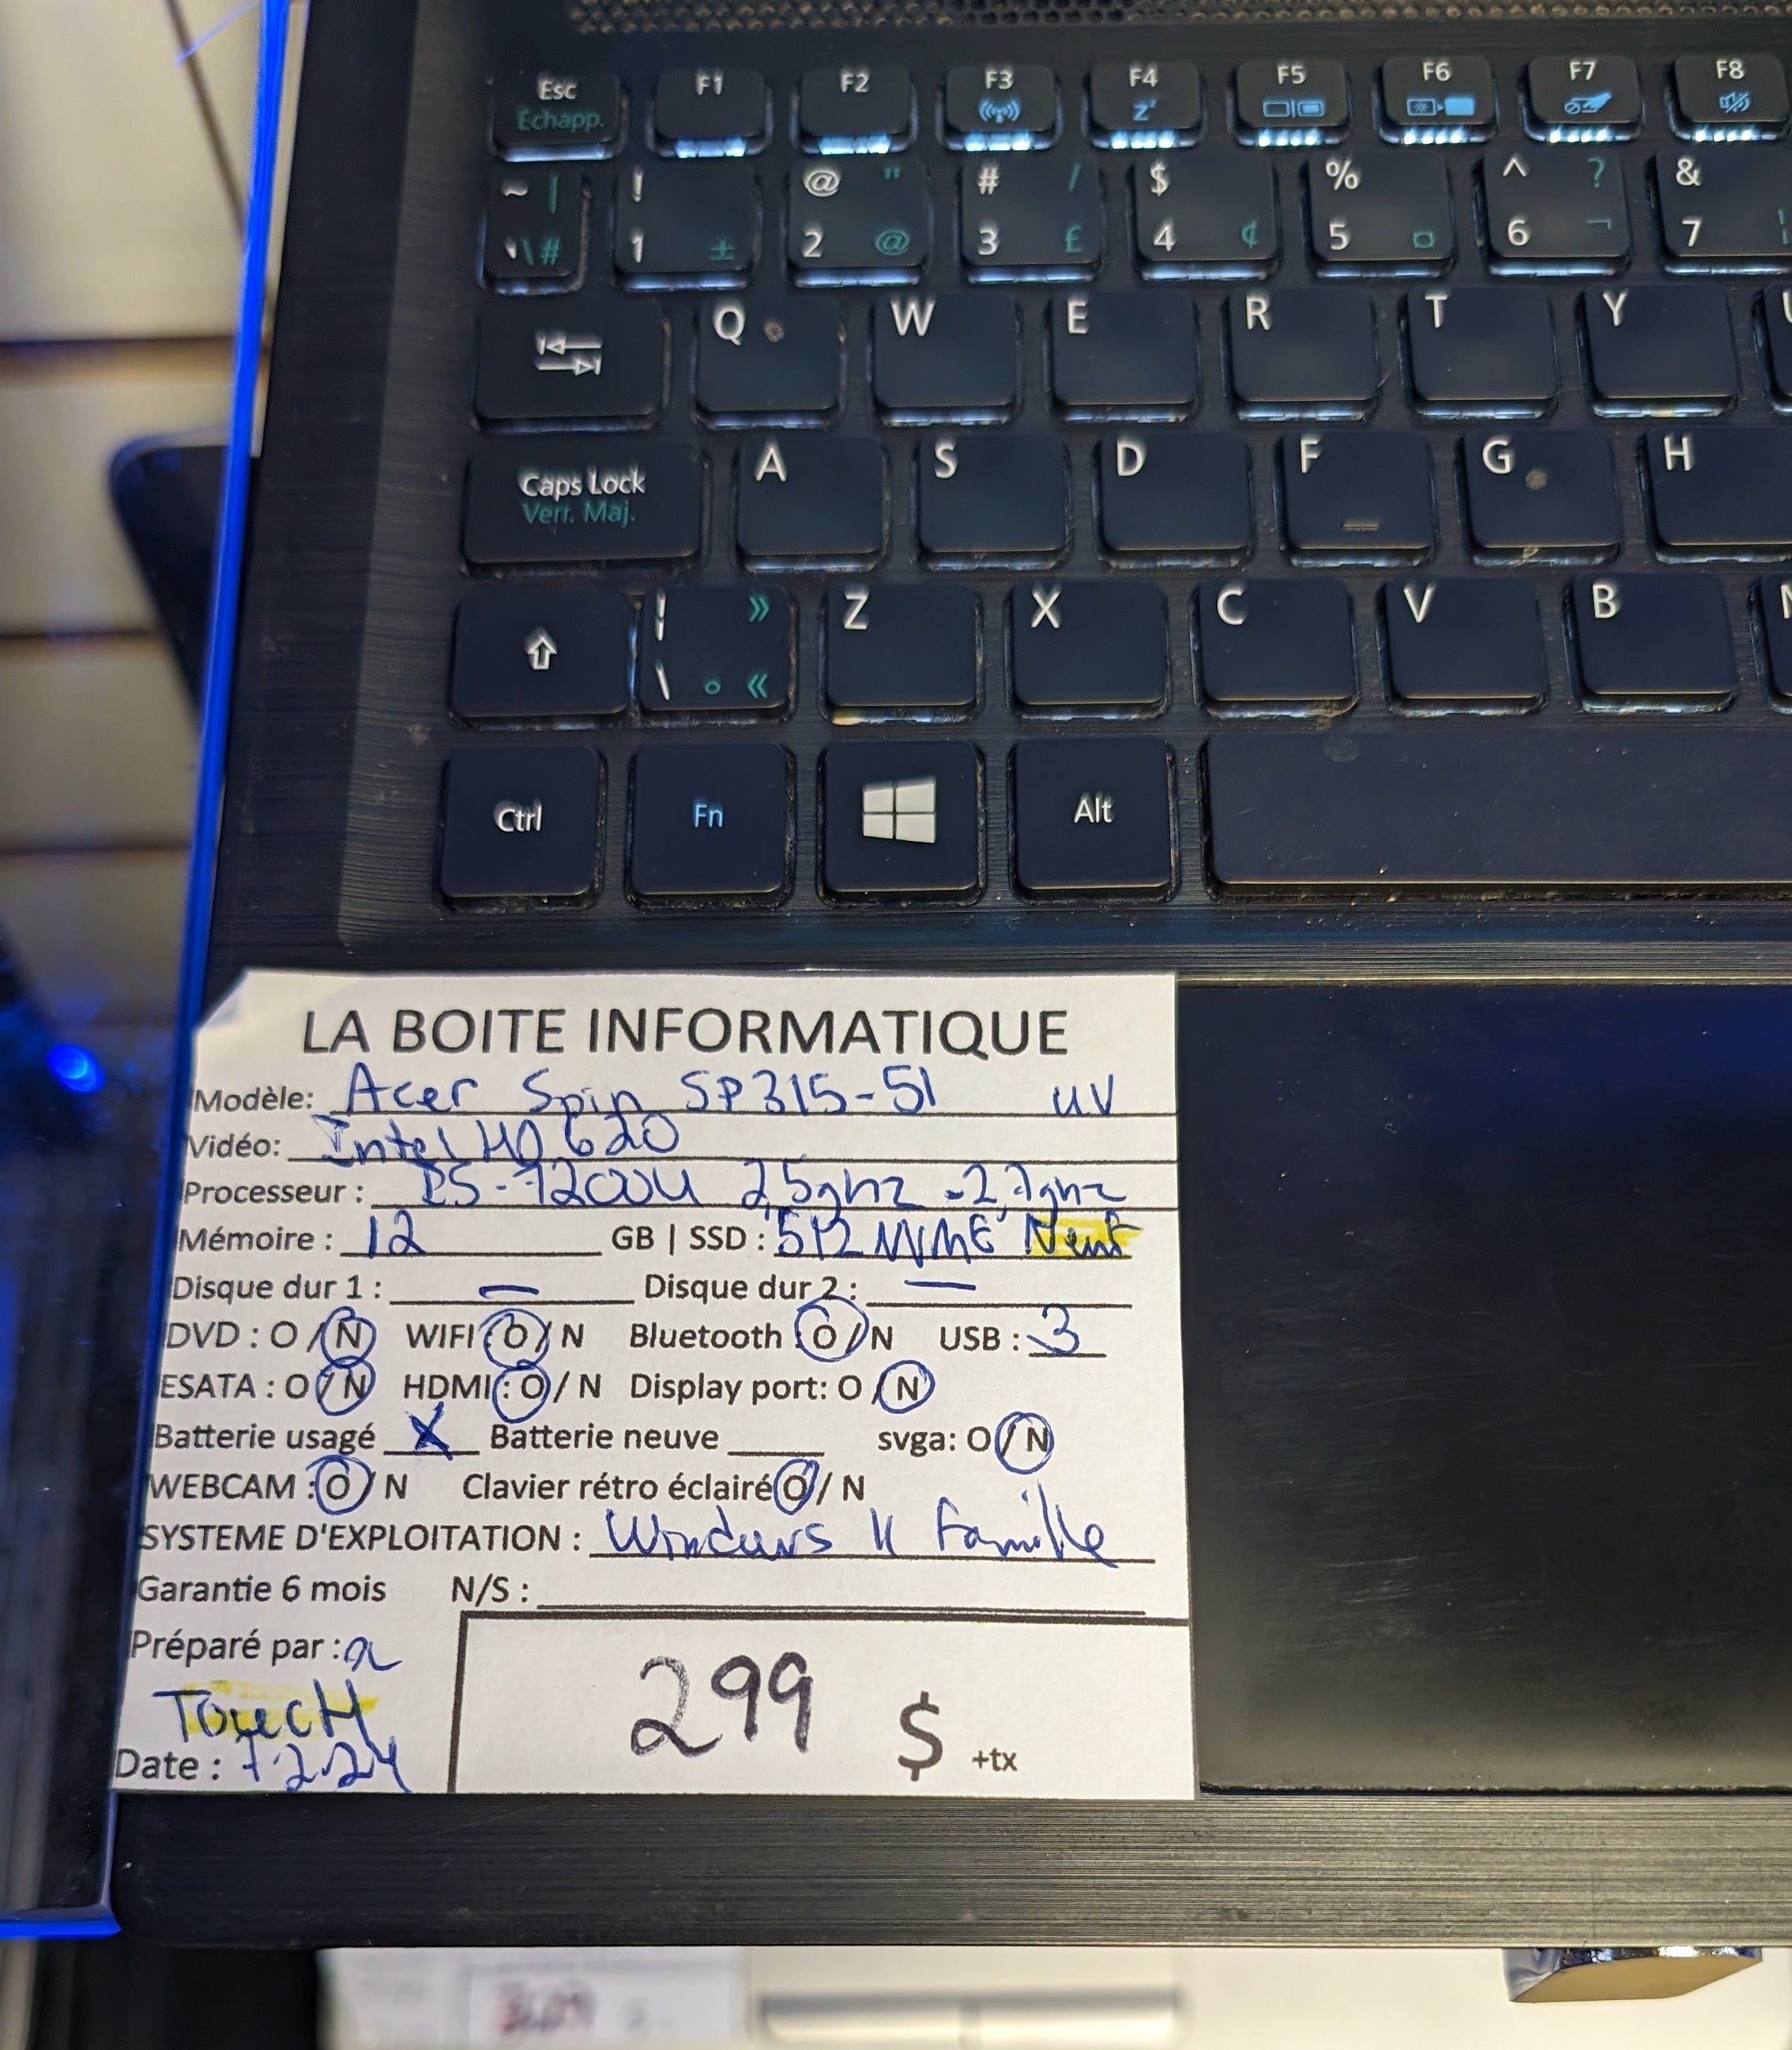 Esc F1 F2 F3 F4 F5 F6 F7 F8
Échapp. Z
~ | ! @ " # / $ % ^ ? &
\ # 1 ± 2 @ 3 £ 4 ¢ 5 ¤ 6 ¬ 7
Q W E R T Y
A S D F G H
Caps Lock
Verr. Maj.
| » Z X C V B
\ ° «
Ctrl Fn Alt
LA BOITE INFORMATIQUE
Modèle: Acer Spin SP315-51 UV
Vidéo: Intel HD 620
Processeur : I5-7200U 2,5ghz - 2,7ghz
Mémoire : 12 GB | SSD : 512 NVME Neuf
Disque dur 1 : — Disque dur 2 : —
DVD : O / N WIFI : O / N Bluetooth : O / N USB : 3
ESATA : O / N HDMI : O / N Display port: O / N
Batterie usagé X Batterie neuve ____ svga: O / N
WEBCAM : O / N Clavier rétro éclairé O / N
SYSTEME D'EXPLOITATION : Windows 11 Famille
Garantie 6 mois N/S :
Préparé par :
Touch
Date : 7.2.24
299 $ +tx